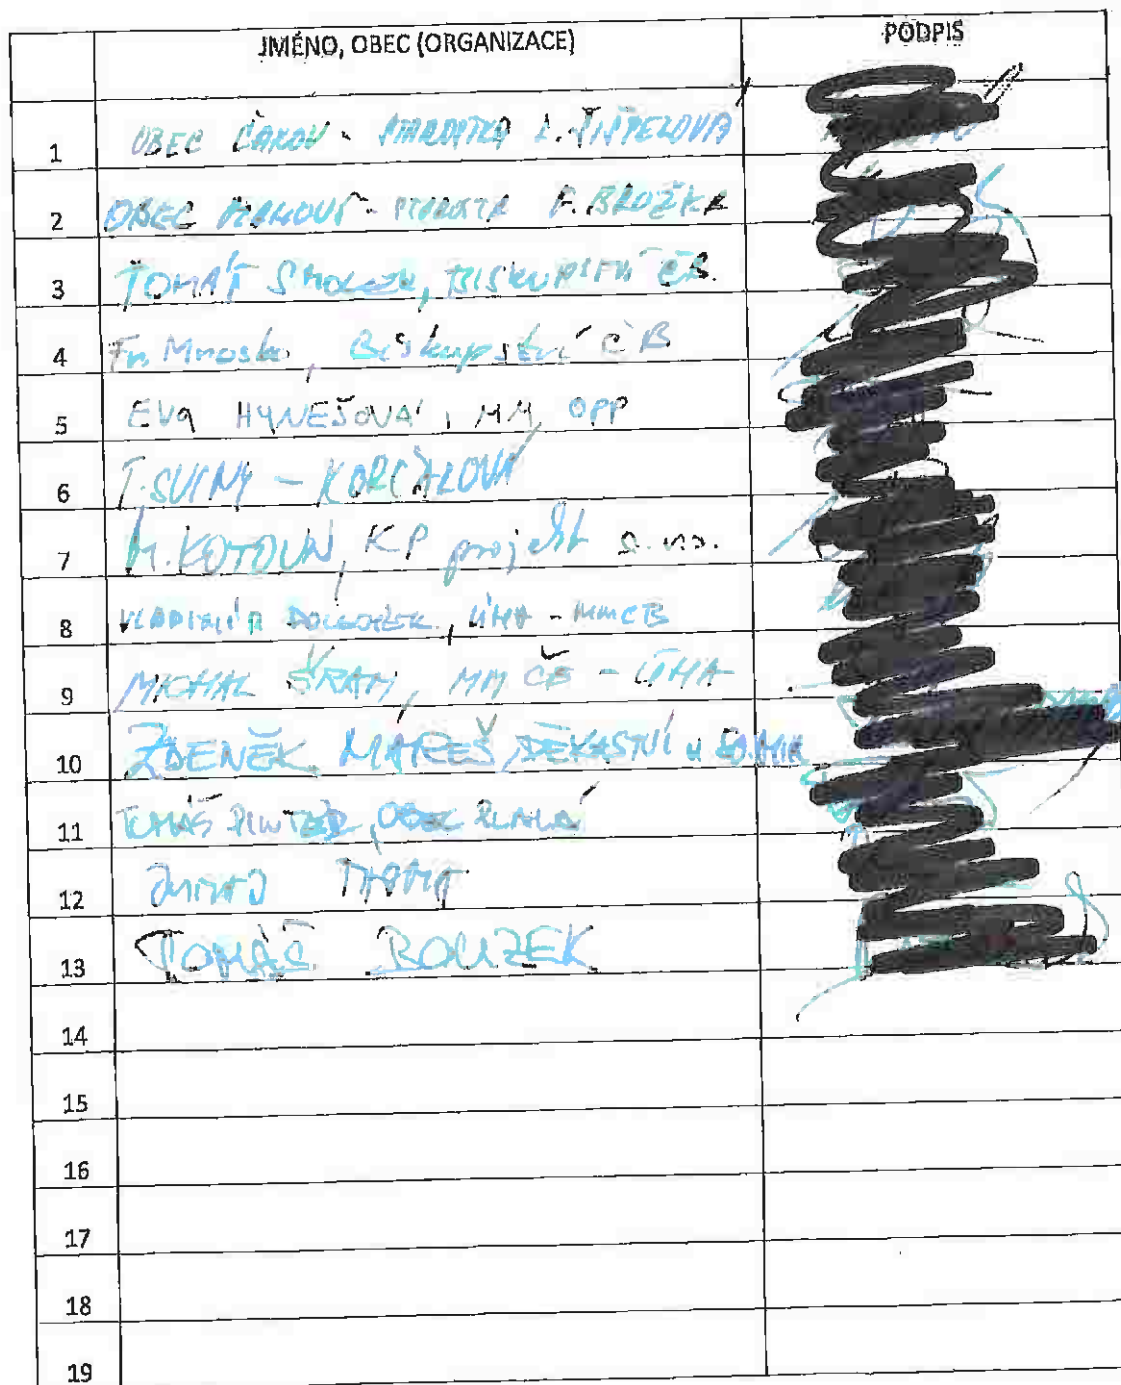 JMÉNO, OBEC (ORGANIZACE) PODPIS
1 OBEC ČAKOV - STAROSTKA
2 OBEC - STAROSTA P. BROŽKA
3 TOMÁŠ SMOLEK, BISKUPSTVÍ ČB.
4 Biskupství ČB
5 EVA HYNEŠOVÁ, MM, OPP
6 T. SVINY - KORČÁKOVÁ
7 M. KOTOUN, KP projekt s.r.o.
8 VLADIMÍR, ÚHA - MMČB
9 MICHAL ŠRAM, MM ČB - ÚHA
10 ZDENĚK MAREŠ, DĚKANSTVÍ u
11 TOMÁŠ PINTÉR, OBEC PLANÁ
12
13 TOMÁŠ BOUZEK
14
15
16
17
18
19